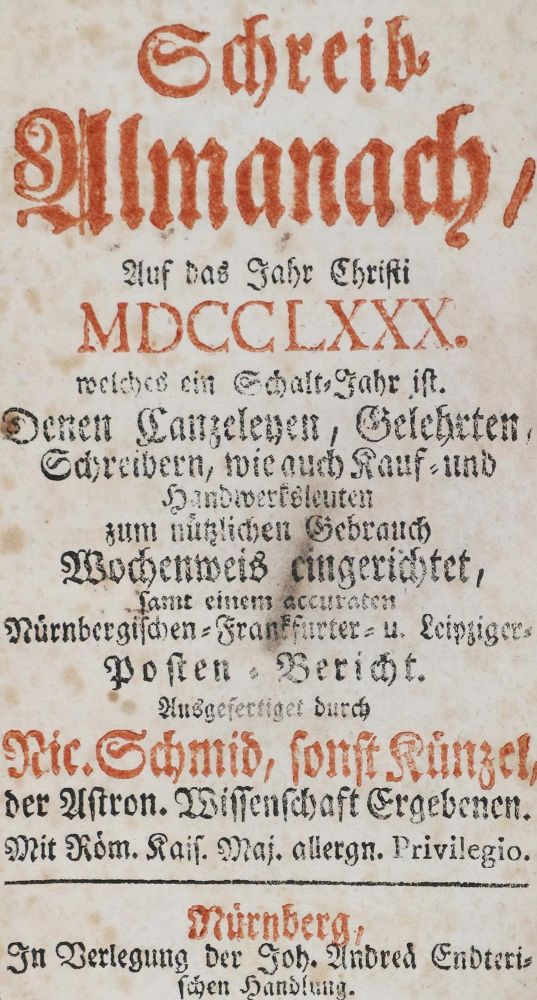 Schreib-
Almanach,
Auf das Jahr Christi
MDCCLXXX.
welches ein Schalt-Jahr ist.
Denen Canzeleyen, Gelehrten,
Schreibern, wie auch Kauf- und
Handwerksleuten
zum nützlichen Gebrauch
Wochenweis eingerichtet,
samt einem accuraten
Nürnbergischen-Frankfurter- u. Leipziger-
Posten-Bericht.
Ausgefertiget durch
Nic. Schmid, sonst Künzel,
der Astron. Wissenschaft Ergebenen.
Mit Röm. Kais. Maj. allergn. Privilegio.
Nürnberg,
In Verlegung der Joh. Andreä Endteri-
schen Handlung.